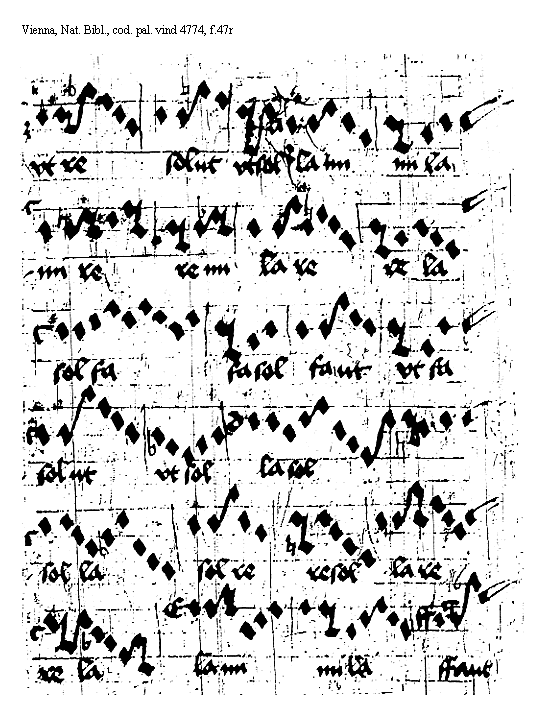 Vienna, Nat. Bibl., cod. pal. vind 4774, f.47r
vt re solut vtsol la mi mi la
mi re re mi la re re la
sol fa fa sol faut vt fa
sol ut vt sol la sol
sol la sol re resol la re
re la la mi mi la ffaut